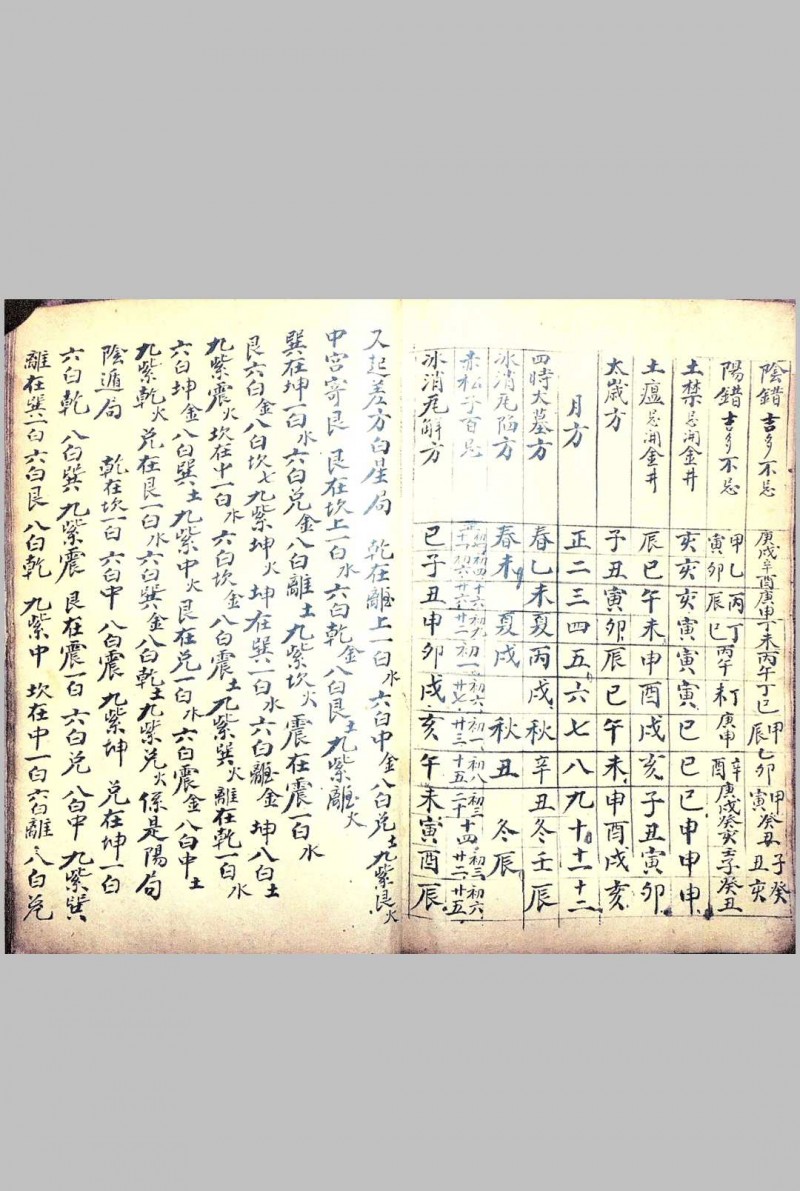 陰錯 吉多不忌 庚戌辛酉庚申丁未丙午丁巳甲辰乙卯甲寅癸丑子癸丑亥
陽錯 吉多不忌 甲寅乙卯丙辰丁巳丙午丁未庚申辛酉庚戌癸亥壬子癸丑
土禁 忌開金井 亥亥亥寅寅寅巳巳巳申申申
土瘟 忌開金井 辰巳午未申酉戌亥子丑寅卯
太歲方 子丑寅卯辰巳午未申酉戌亥
月方 正二三四五六七八九十十一十二
四時大墓方 春乙未夏丙戌秋辛丑冬壬辰
冰消瓦陷方 春未夏戌秋丑冬辰
赤松子百忌
冰消瓦解方 巳子丑申卯戌亥午未寅酉辰
又起差方白星局 乾在離上一白水六白中金八白兌土九紫艮火
中宮寄艮 艮在坎上一白水六白乾金八白艮土九紫離火
巽在坤一白水六白兌金八白離土九紫坎火 震在震一白水
艮六白金八白坎七九紫坤火 坤在巽一白水六白離金坤八白土
九紫震火坎在中一白水六白坎金八白震土九紫巽火離在乾一白水
六白坤金八白巽土九紫中火艮在兌一白水六白震金八白中土
九紫乾火兌在艮一白水六白巽金八白乾土九紫兌火係是陽局
陰遁局 乾在坎一白 六白中 八白震 九紫坤 兌在坤一白
六白乾 八白巽 九紫震 艮在震一白 六白兌 八白中 九紫巽
離在巽一白 六白艮 八白乾 九紫中 坎在中一白六白離八白兌